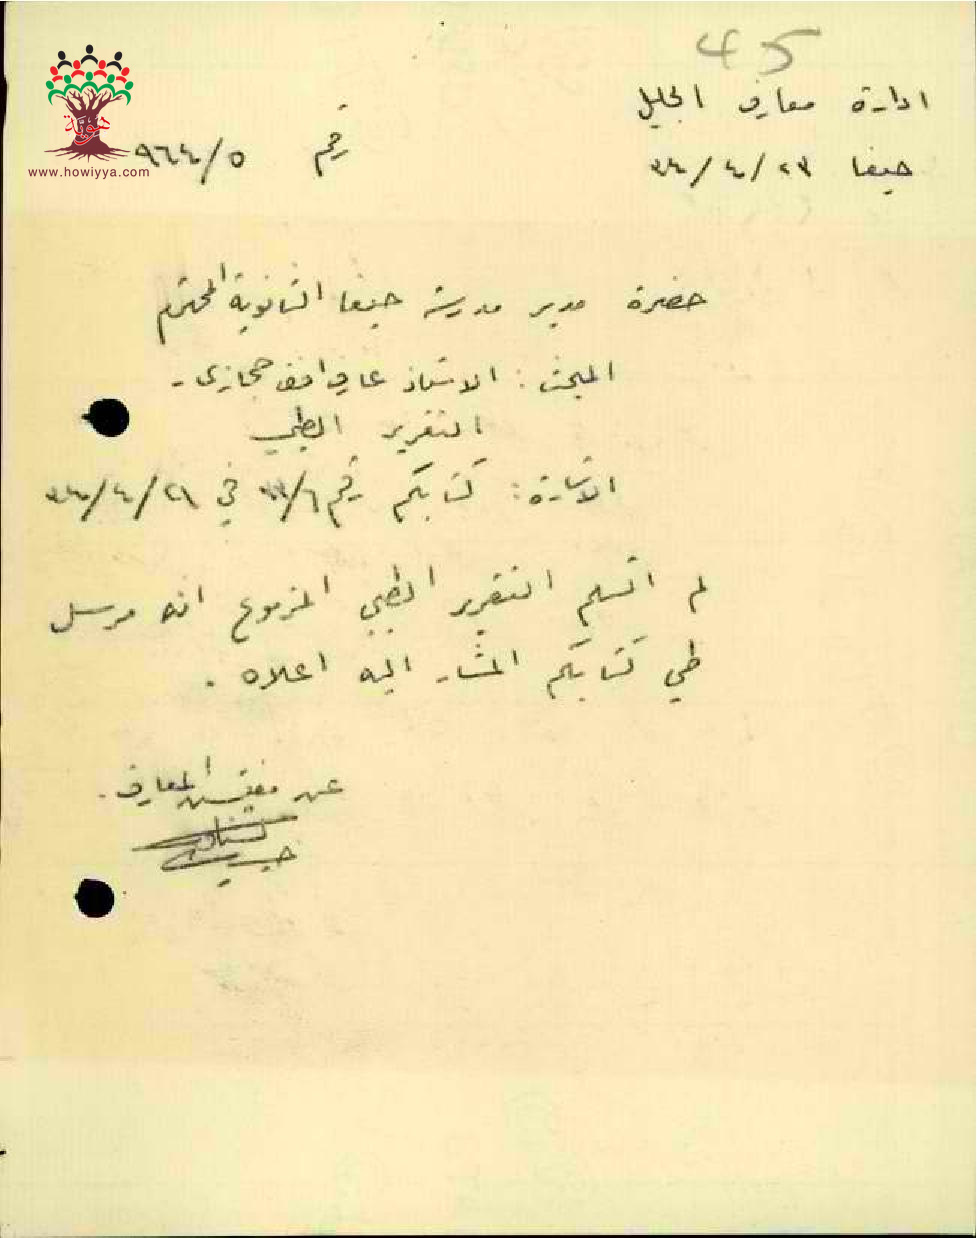 45
ادارة معارف الجليل
حيفا ٢٣/٤/٣٤
رقم ٩٦٤/٥
هوية
www.howiyya.com
حضرة مدير مدرسة حيفا الثانوية المحترم
المبحث: الاستاذ عارف افندي حجازي -
التقرير الطبي
الاشارة: كتابكم رقم ٣٣/٦ في ٢١/٤/٣٤
لم اتسلم التقرير الطبي المزعوم انه مرسل
طي كتابكم المشار اليه اعلاه .
عن مفتش المعارف .